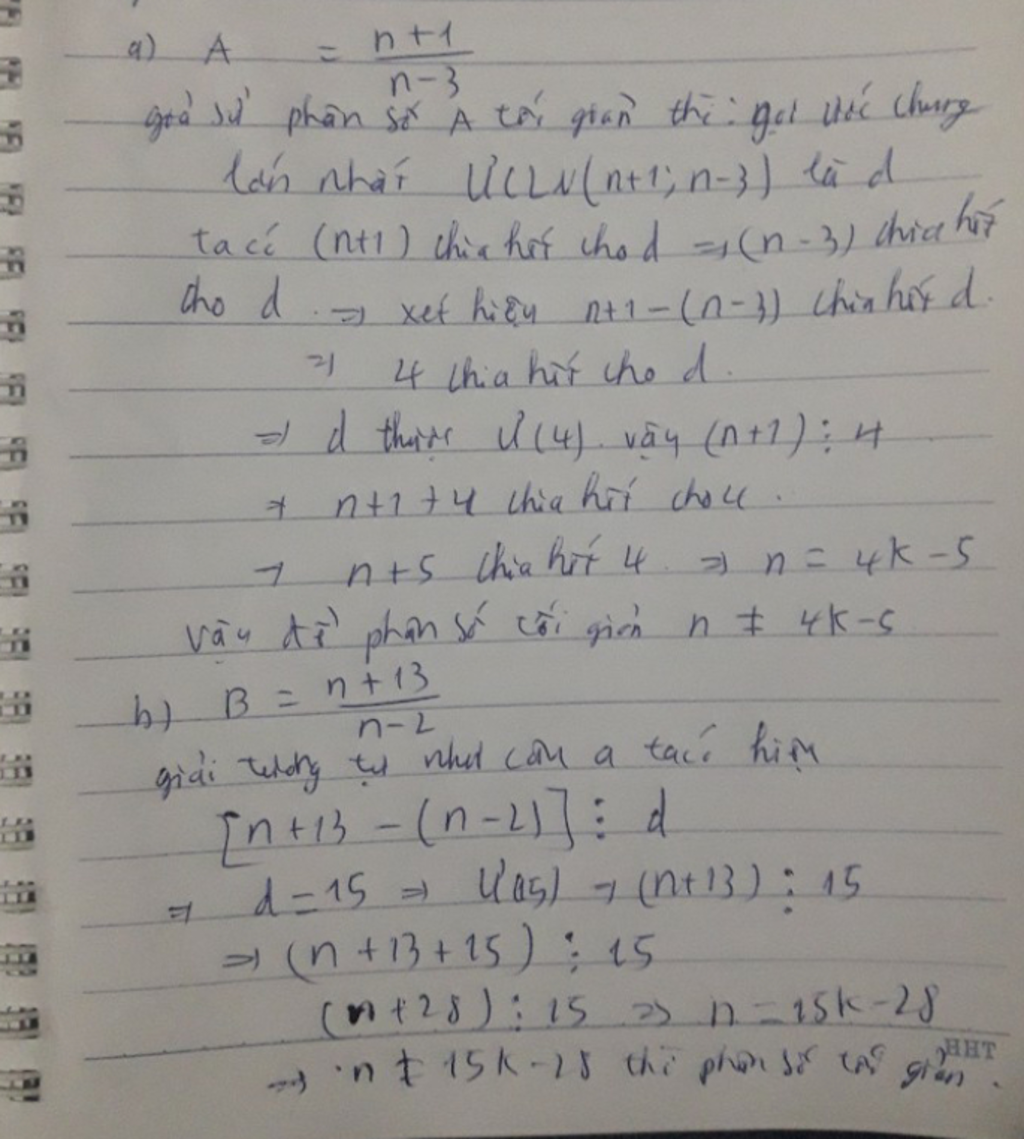 a) A = \frac{n+1}{n-3}
giả sử phân số A tối giản thì: gọi ước chung
lớn nhất ƯCLN(n+1; n-3) là d
ta có (n+1) chia hết cho d => (n-3) chia hết
cho d. => xét hiệu n+1-(n-3) chia hết d.
=> 4 chia hết cho d.
=> d thuộc Ư(4). vậy (n+1) ⋮ 4
→ n+1+4 chia hết cho 4.
→ n+5 chia hết 4 => n = 4k-5
vậy để phân số tối giản n ≠ 4k-5
b) B = \frac{n+13}{n-2}
giải tương tự như câu a ta có hiệu
[n+13 - (n-2)] ⋮ d
=> d = 15 => Ư(15) → (n+13) ⋮ 15
=> (n+13+15) ⋮ 15
(n+28) ⋮ 15 => n = 15k-28
=> n ≠ 15k-28 thì phân số tối giản.
HHT